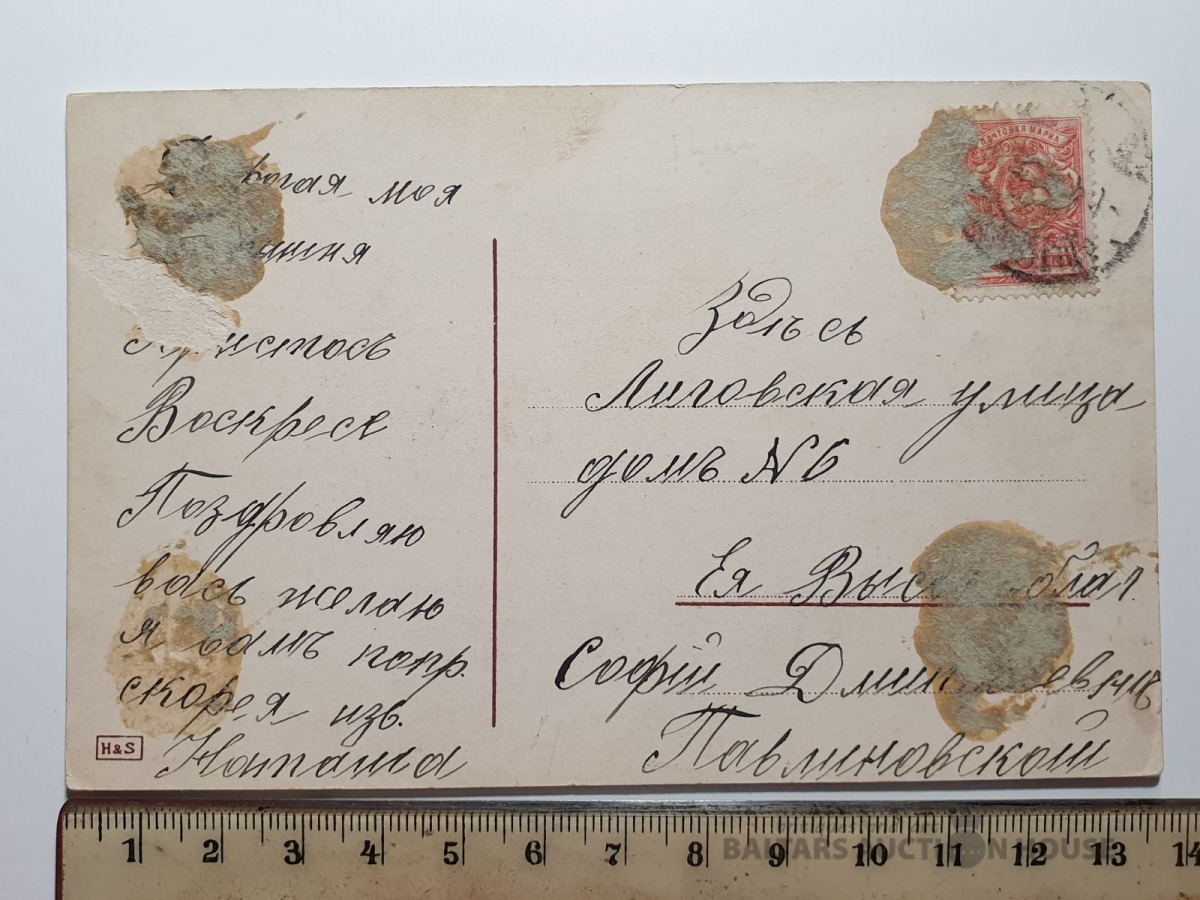 моя
Христосъ
Воскресе
Поздровляю
васъ желаю
я вамъ попр.
скорея изв.
Наташа
H&S
ПОЧТОВАЯ МАРКА
Здѣсь
Лиговская улица
домъ N 6
Ея
Софіи
Павлиновской
1 2 3 4 5 6 7 8 9 10 11 12 13 14
BALTARS AUCTION HOUSE